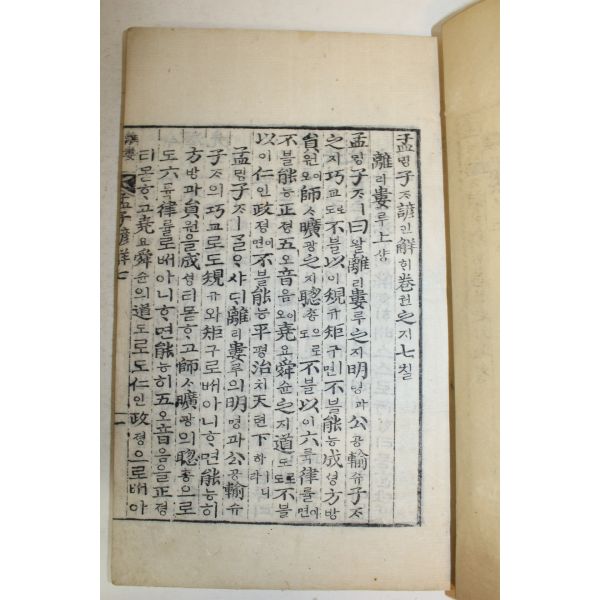 孟ᄆᆡᆼ子ᄌᆞ諺언解ᄒᆡ卷권之지七칠
離리婁루上샹
孟ᄆᆡᆼ子ᄌᆞㅣ曰왈離리婁루之지明명과公공輸슈子ᄌᆞ
之지巧교로도不블以이規규矩구ㅣ면不블能능成셩方방
員원이오師ᄉᆞ曠광之지聰총으로도不블以이六륙律률이면
不블能능正졍五오音음이오堯요舜슌之지道도로도不블
以이仁인政졍이면不블能능平평治치天텬下하ㅣ니라
孟ᄆᆡᆼ子ᄌᆞㅣᄀᆞᆯᄋᆞ샤ᄃᆡ離리婁루의明명과公공輸슈
子ᄌᆞ의巧교로도規규와矩구로ᄡᅥ아니ᄒᆞ면能능히
方방과員원을成셩티몯ᄒᆞ고師ᄉᆞ曠광의聰총으로
도六륙律률로ᄡᅥ아니ᄒᆞ면能능히五오音음을正졍
티몯ᄒᆞ고堯요舜슌의道도로도仁인政졍으로ᄡᅥ아
離婁 孟子諺解七 一